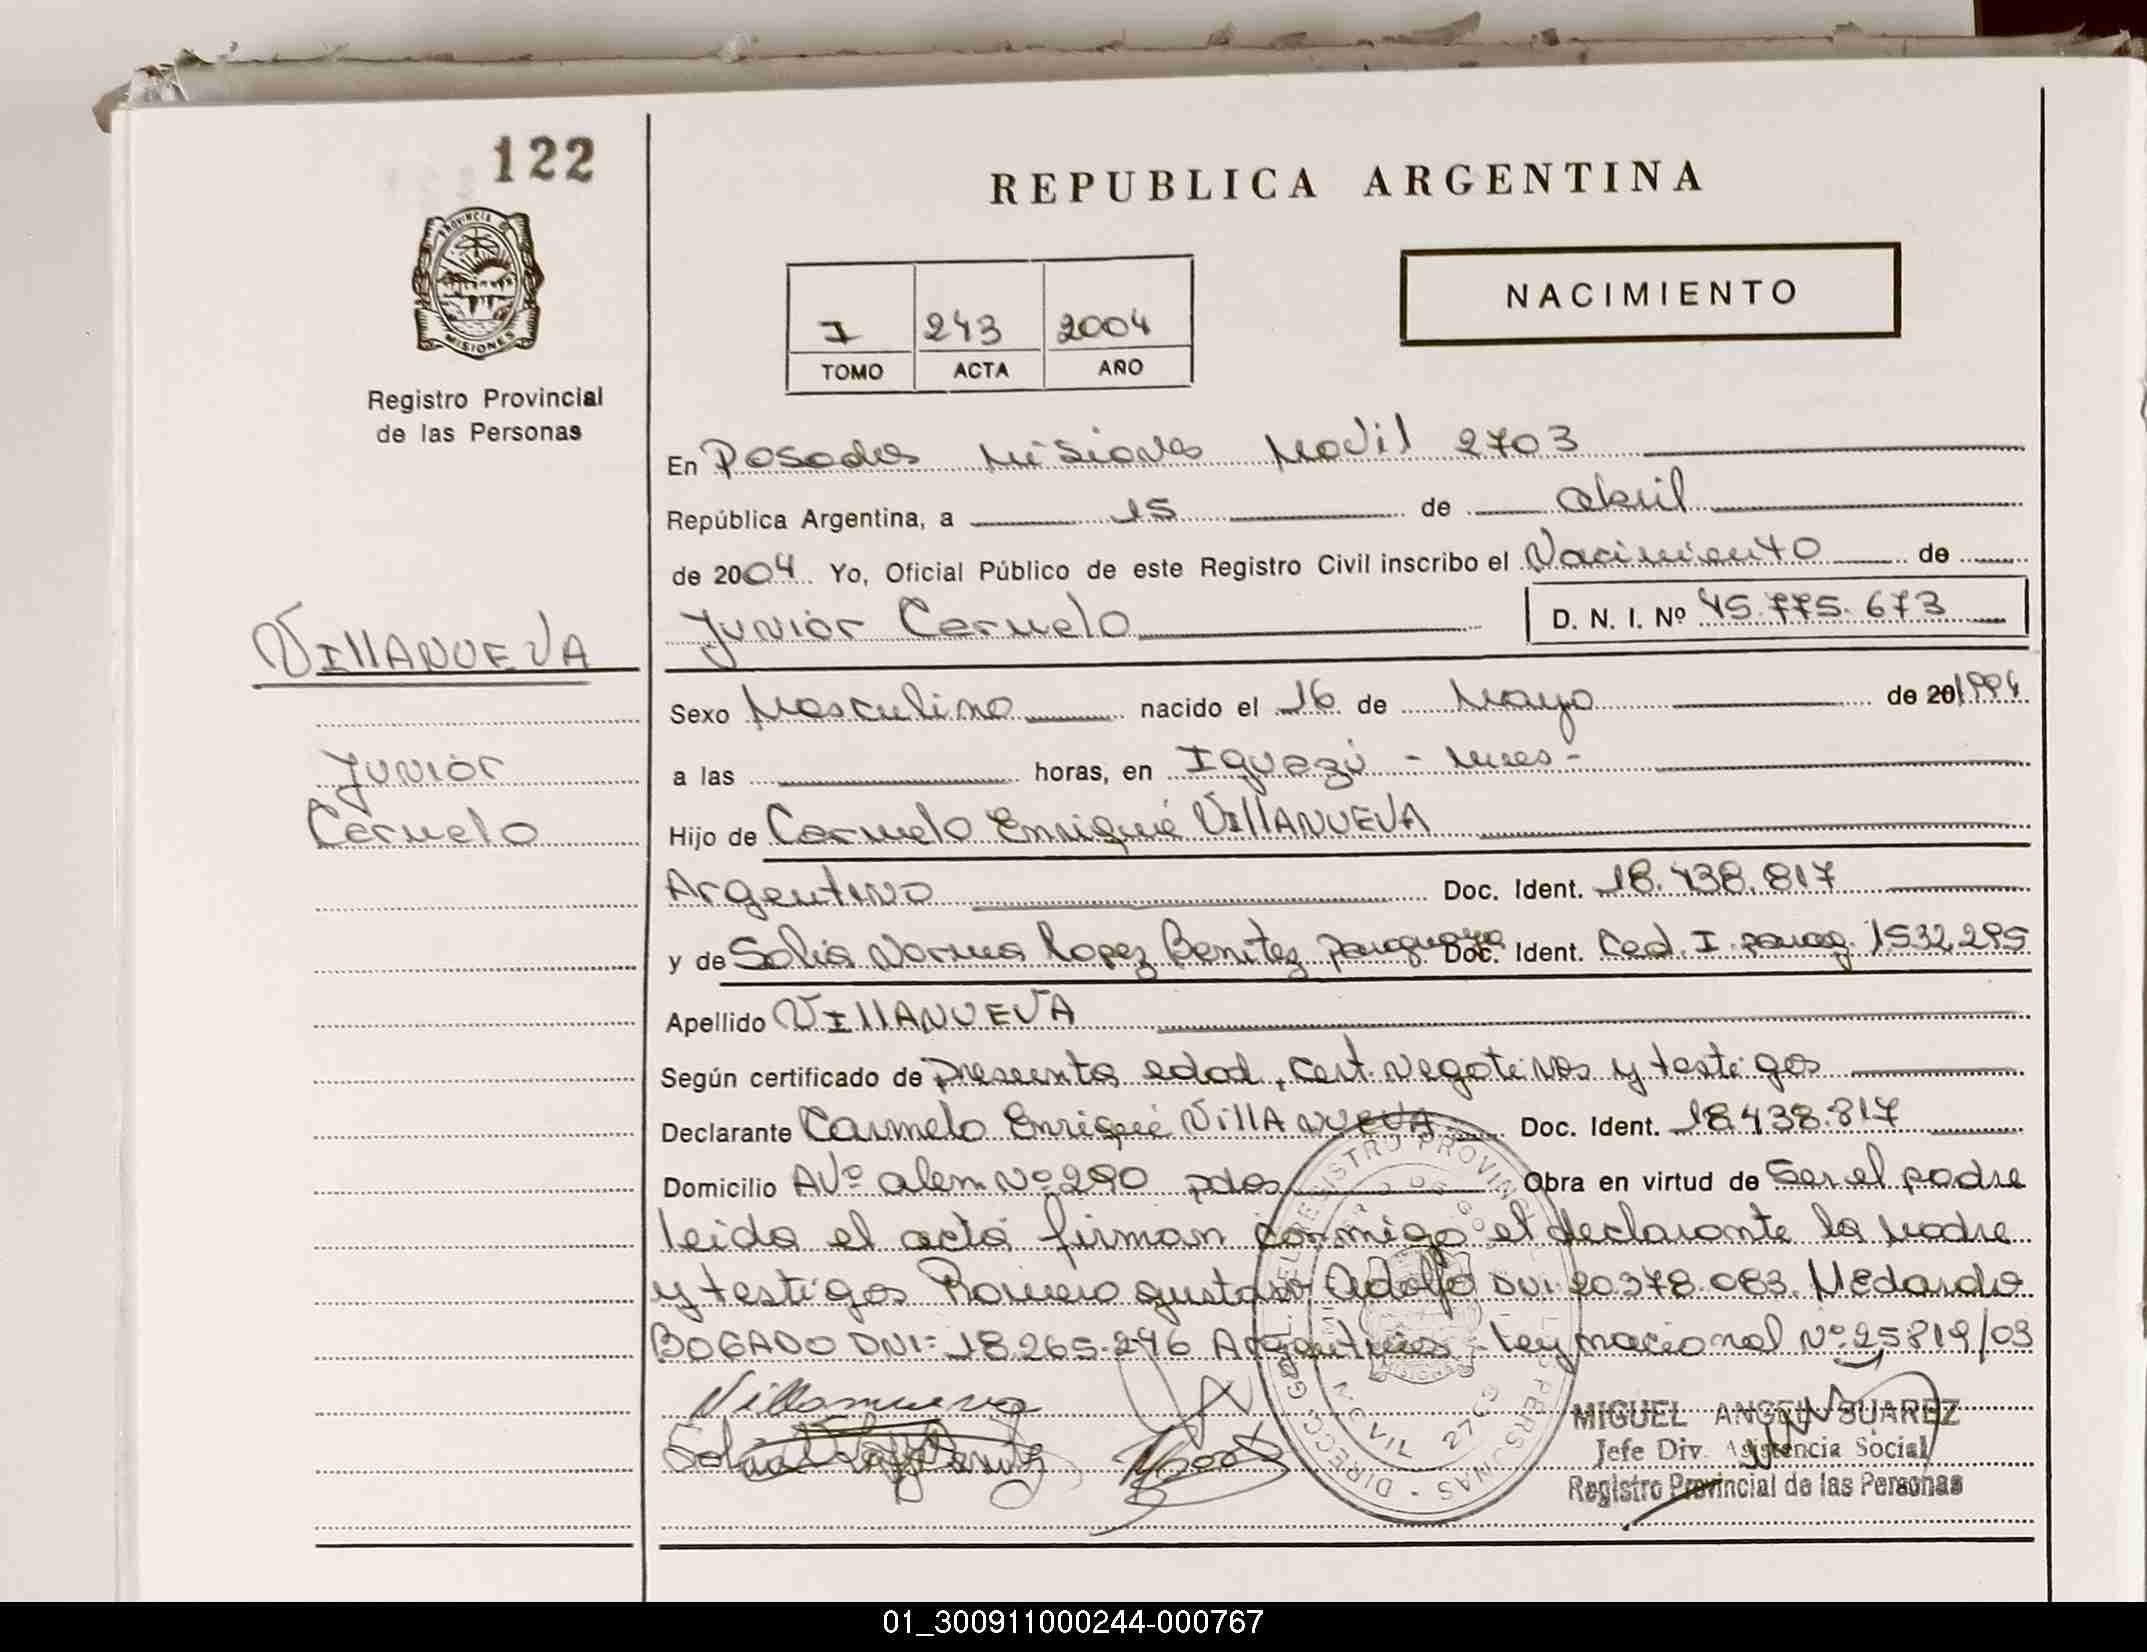 122
PROVINCIA
MISIONES
Registro Provincial
de las Personas
REPUBLICA ARGENTINA
I 243 2004
TOMO ACTA AÑO
NACIMIENTO
En Posadas Misiones Movil 2703
República Argentina, a 15 de abril
de 2004 Yo, Oficial Público de este Registro Civil inscribo el Nacimiento de
Junior Carmelo D. N. I. Nº 45.775.673
VIllANUEVA
Sexo Masculino nacido el 16 de Mayo de 20 1994
Junior
a las horas, en Iguazú - Mnes -
Carmelo
Hijo de Carmelo Enrique VIllANUEVA
Argentino Doc. Ident. 18.438.817
y de Norma Lopez Benitez paraguaya Doc. Ident. Ced. I. parag. 1532.295
Apellido VIllANUEVA
Según certificado de presunta edad, cert. negativos y testigos
Declarante Carmelo Enrique VillANUEVA Doc. Ident. 18.438.817
Domicilio AVº alem Nº 290 pdas Obra en virtud de Ser el padre
leida el acta firman conmigo el declarante la madre
y testigos Romero gustavo Adolfo DNI: 20.378.083. Medardo
BOGADO DNI: 18.265.296 Argentinos - ley nacional Nº 25819/03
Villanueva
MIGUEL ANGEL SUAREZ
Jefe Div. Asistencia Social
Registro Provincial de las Personas
01_300911000244-000767